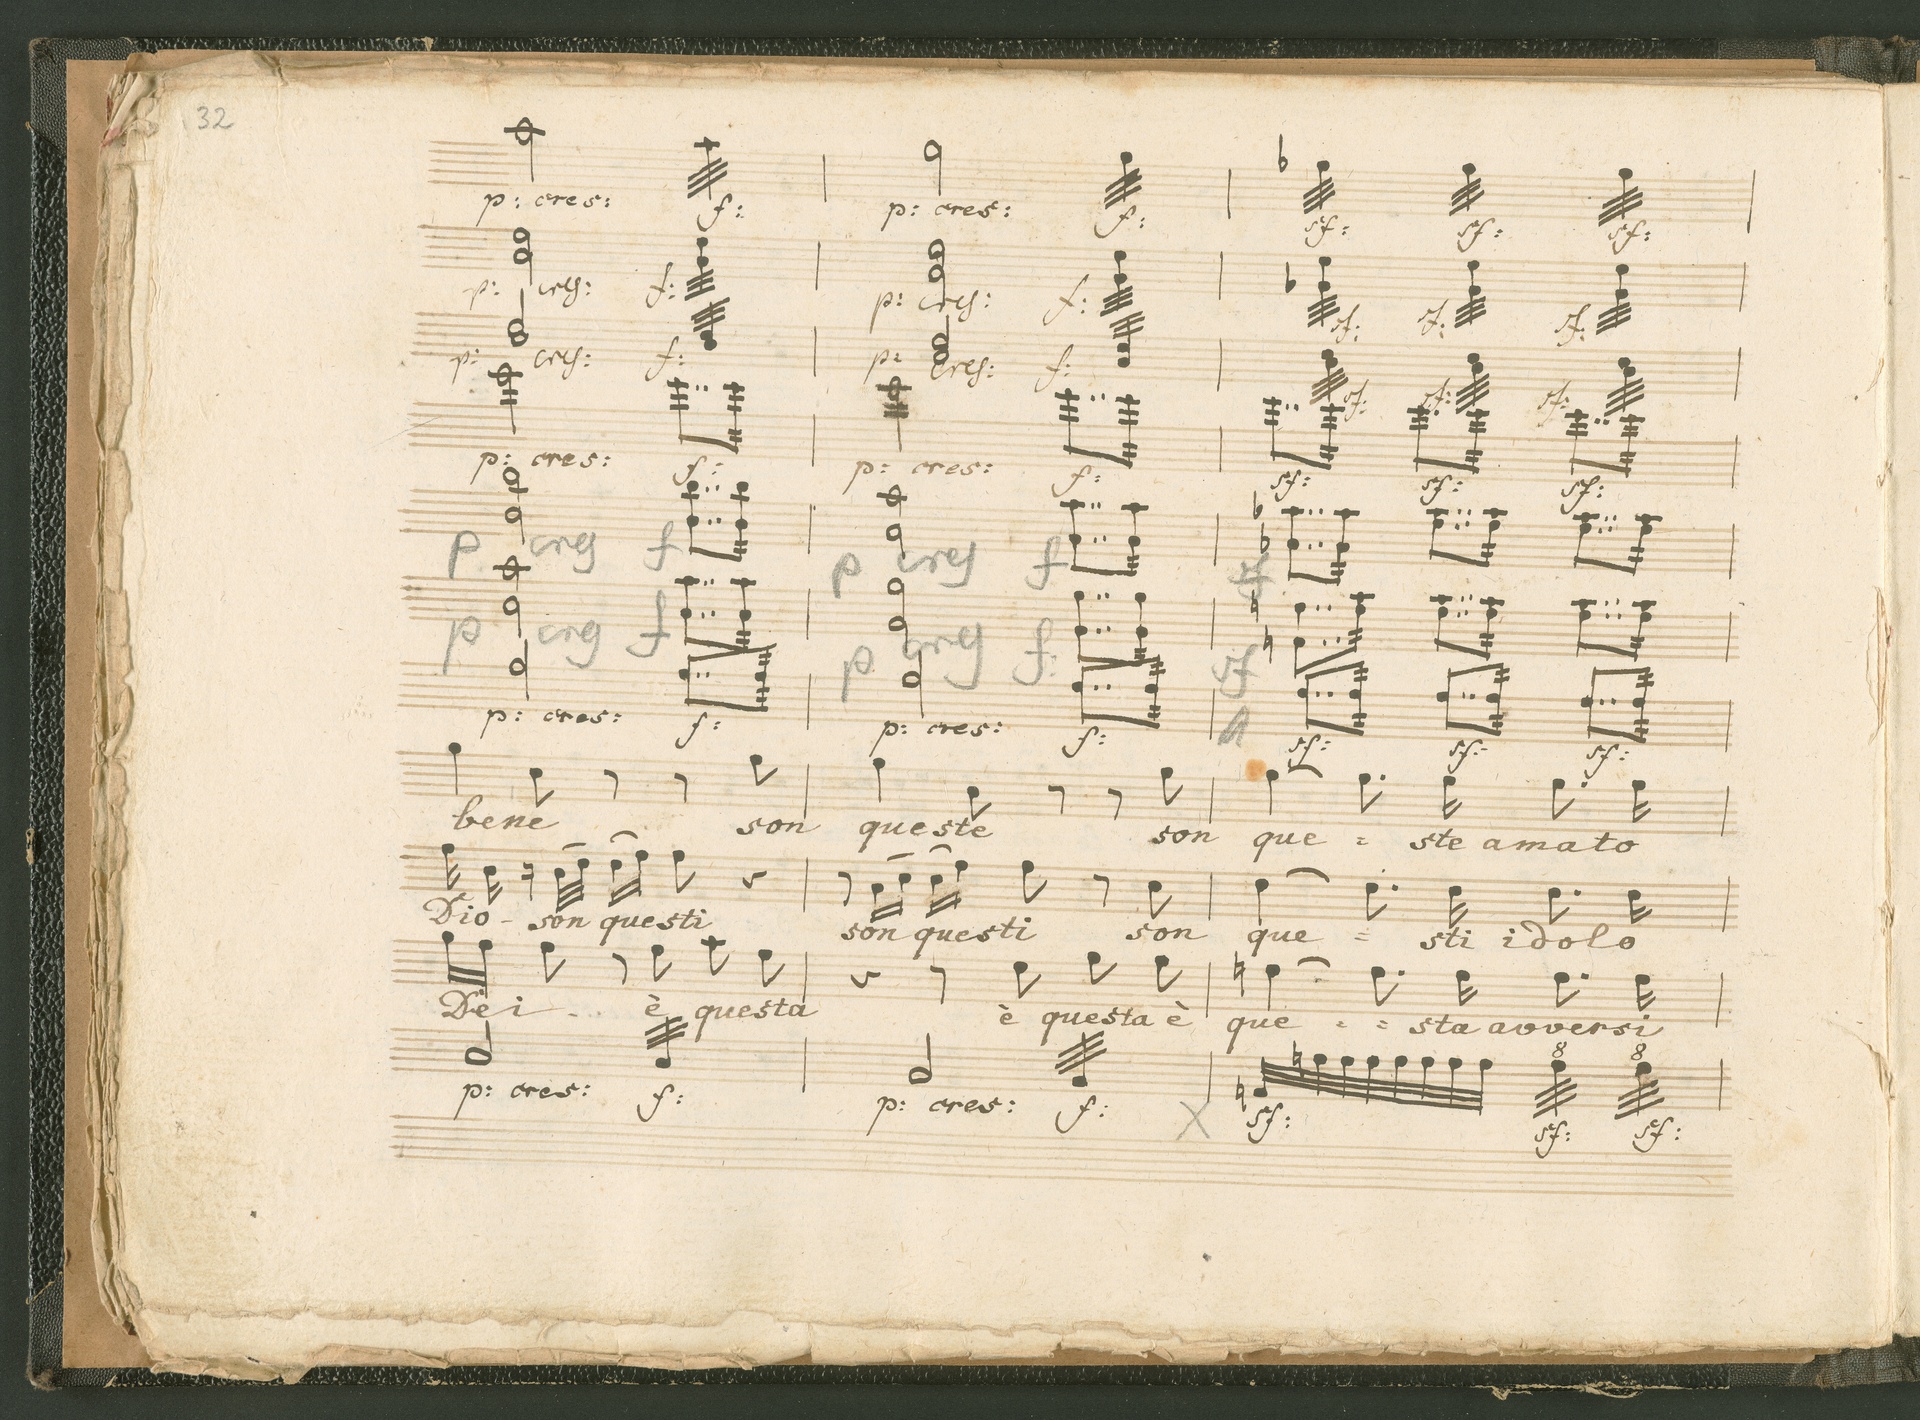 32
p: cres: f: p: cres: f: sf: sf: sf:
p: cres: f: p: cres: f: sf: sf: sf:
p: cres: f: p: cres: f: sf: sf: sf:
p: cres: f: p: cres: f: sf: sf: sf:
p cres f p cres f sf
p cres f p cres f: sf
p: cres: f: p: cres: f: sf: sf: sf:
bene son queste son que = ste amato
Dio - son questi son questi son que = sti idolo
Dei - .. è questa è questa è que = = sta avversi
8 8
p: cres: f: p: cres: f: X sf: sf: sf: